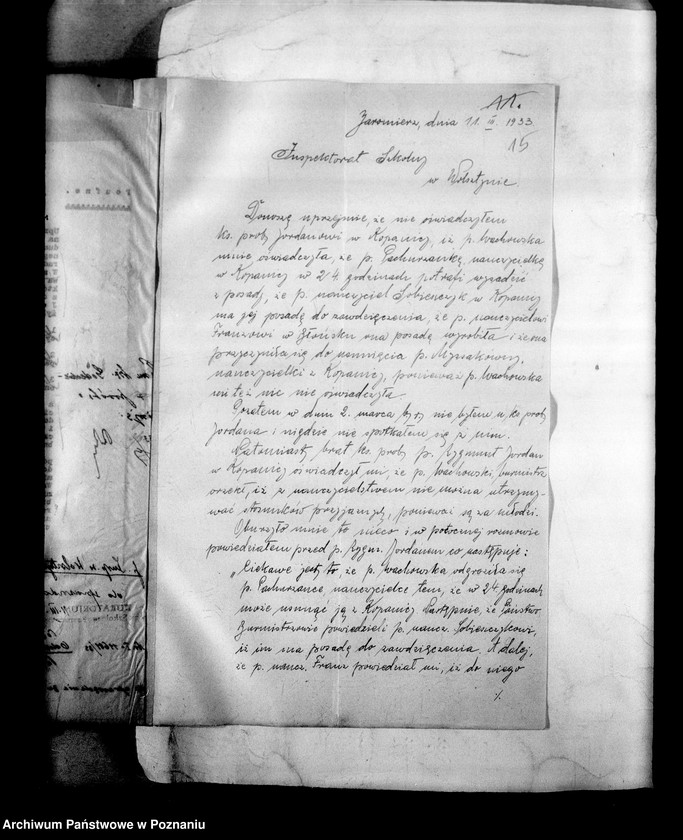 11.
Jaromierz, dnia 11. III. 1933.
15
Inspektorat Szkolny
w Wolsztynie.
Donoszę uprzejmie, że nie oświadczyłem
ks. prob. Jordanowi w Kopanicy, iż p. Wachowska
mnie oświadczyła, że p. nauczycielkę
w Kopanicy w 24. godzinach potrafi wysadzić
z posady, że p. nauczyciel Sobieńczyk w Kopanicy
ma jej posadę do zawdzięczenia, że p. nauczycielowi
Franzowi w ona posadę wyrobiła i że ona
przyczyniła się do usunięcia p.
nauczycielki z Kopanicy, ponieważ p. Wachowska
mi też nic nie oświadczyła.
Pozatem w dniu 2. marca br. nie byłem u ks. prob.
Jordana i nigdzie nie spotkałem się z nim.
Natomiast brat ks. prob. p. Zygmunt Jordan
w Kopanicy oświadczył mi, że p. Wachowski, burmistrz
orzekł, iż z nauczycielstwem nie można utrzymy-
wać stosunków przyjaznych, ponieważ są za młodzi.
Oburzyło mnie to nieco i w potocznej rozmowie
powiedziałem przed p. Zygm. Jordanem co następuje:
„Ciekawe jest to, że p. Wachowska odgroziła się
p. nauczycielce tem, że w 24 godzinach
może usunąć ją z Kopanicy. Następnie, że Państwo
Burmistrzowie powiedzieli p. naucz. Sobieńczykowi,
iż im ma posadę do zawdzięczenia. A dalej,
że p. naucz. Franz powiedział mi, iż do niego
./.
Archiwum Państwowe w Poznaniu